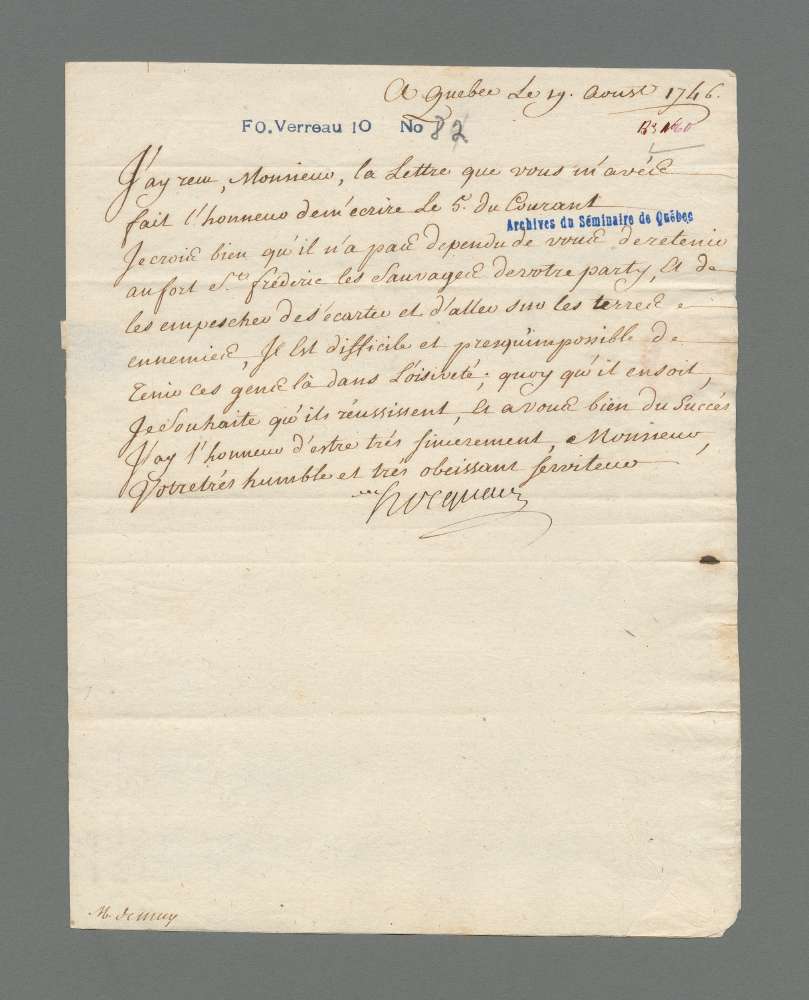 A Quebec Le 19. Aoust 1746.
FO. Verreau 10 No 82
J'ay reçu, Monsieur, la Lettre que vous m'avéz
fait l'honneur dem'ecrire Le 5. du Courant
Archives du Séminaire de Québec
Je crois bien qu'il n'a pas dependu de vous de retenir
au fort St. frédéric les Sauvages de votre party, Et de
les empescher de s'écarter et d'aller sur les terres
ennemies, Il Est difficile et presqu'impossible de
tenir ces gens là dans L'oisiveté; quoy qu'il en soit,
Je Souhaite qu'ils réussissent, Et avous bien du Succés
J'ay l'honneur d'estre trés sincerement, Monsieur,
Votre trés humble et trés obeissant serviteur
Hocquart
M. demuy